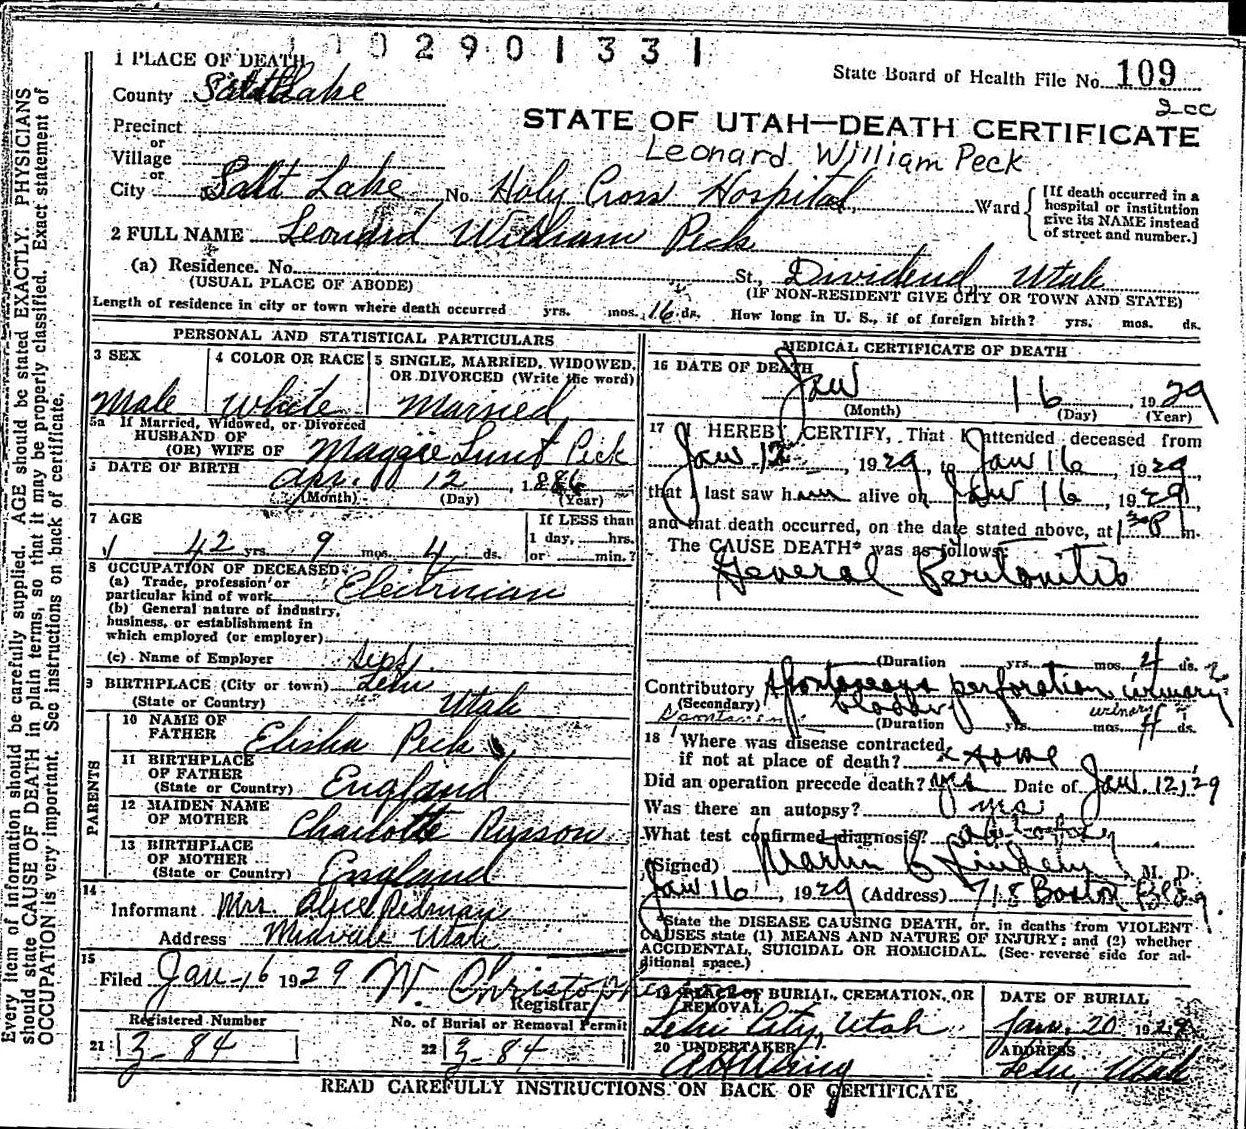 1 0 0 2 9 0 1 3 3 1
1 PLACE OF DEATH
State Board of Health File No. 109
County Salt Lake
2cc
STATE OF UTAH—DEATH CERTIFICATE
Precinct
or
Village
Leonard William Peck
or
City Salt Lake No. Holy Cross Hospital Ward
[If death occurred in a hospital or institution give its NAME instead of street and number.]
2 FULL NAME Leonard William Peck
(a) Residence. No. St., Dividend, Utah
(USUAL PLACE OF ABODE) (IF NON-RESIDENT GIVE CITY OR TOWN AND STATE)
Length of residence in city or town where death occurred yrs. mos. 16 ds. How long in U. S., if of foreign birth? yrs. mos. ds.
PERSONAL AND STATISTICAL PARTICULARS
3 SEX Male
4 COLOR OR RACE White
5 SINGLE, MARRIED, WIDOWED, OR DIVORCED (Write the word) Married
5a If Married, Widowed, or Divorced
HUSBAND OF
(OR) WIFE OF Maggie Lunt Peck
6 DATE OF BIRTH Apr. 12, 1886
(Month) (Day) (Year)
7 AGE
42 yrs. 9 mos. 4 ds.
If LESS than
1 day, hrs.
or min.?
8 OCCUPATION OF DECEASED
(a) Trade, profession or
particular kind of work Electrician
(b) General nature of industry,
business, or establishment in
which employed (or employer)
(c) Name of Employer
9 BIRTHPLACE (City or town) Lehi
(State or Country) Utah
PARENTS
10 NAME OF
FATHER Elisha Peck
11 BIRTHPLACE
OF FATHER
(State or Country) England
12 MAIDEN NAME
OF MOTHER Charlotte Russon
13 BIRTHPLACE
OF MOTHER
(State or Country) England
14
Informant Mrs. Alice Pidman
Address Midvale Utah
15
Filed Jan-16 1929 W. Christopherson
Registrar
Registered Number
21 3-84
No. of Burial or Removal Permit
22 3-84
MEDICAL CERTIFICATE OF DEATH
16 DATE OF DEATH
Jan 16, 1929
(Month) (Day) (Year)
17 I HEREBY CERTIFY, That I attended deceased from
Jan 12, 1929, to Jan 16, 1929
that I last saw him alive on Jan 16, 1929
and that death occurred, on the date stated above, at 1 30 P m.
The CAUSE DEATH* was as follows:
General Peritonitis
(Duration yrs. mos. 4 ds.
Contributory Spontaneous perforation urinary
(Secondary) bladder
(Duration yrs. mos. 4 ds.
18 Where was disease contracted
if not at place of death? home
Did an operation precede death? yes Date of Jan. 12, 29
Was there an autopsy? yes
What test confirmed diagnosis? autopsy
(Signed) Martin C Lindem, M. D.
Jan 16, 1929 (Address) 718 Boston Bldg.
*State the DISEASE CAUSING DEATH, or, in deaths from VIOLENT
CAUSES state (1) MEANS AND NATURE OF INJURY; and (2) whether
ACCIDENTAL, SUICIDAL OR HOMICIDAL. (See reverse side for ad-
ditional space.)
19 PLACE OF BURIAL, CREMATION, OR
REMOVAL
Lehi City, Utah
DATE OF BURIAL
Jan. 20 1929
20 UNDERTAKER
ADDRESS
Lehi, Utah
READ CAREFULLY INSTRUCTIONS ON BACK OF CERTIFICATE
Every item of information should be carefully supplied. AGE should be stated EXACTLY. PHYSICIANS
should state CAUSE OF DEATH in plain terms, so that it may be properly classified. Exact statement of
OCCUPATION is very important. See instructions on back of certificate.